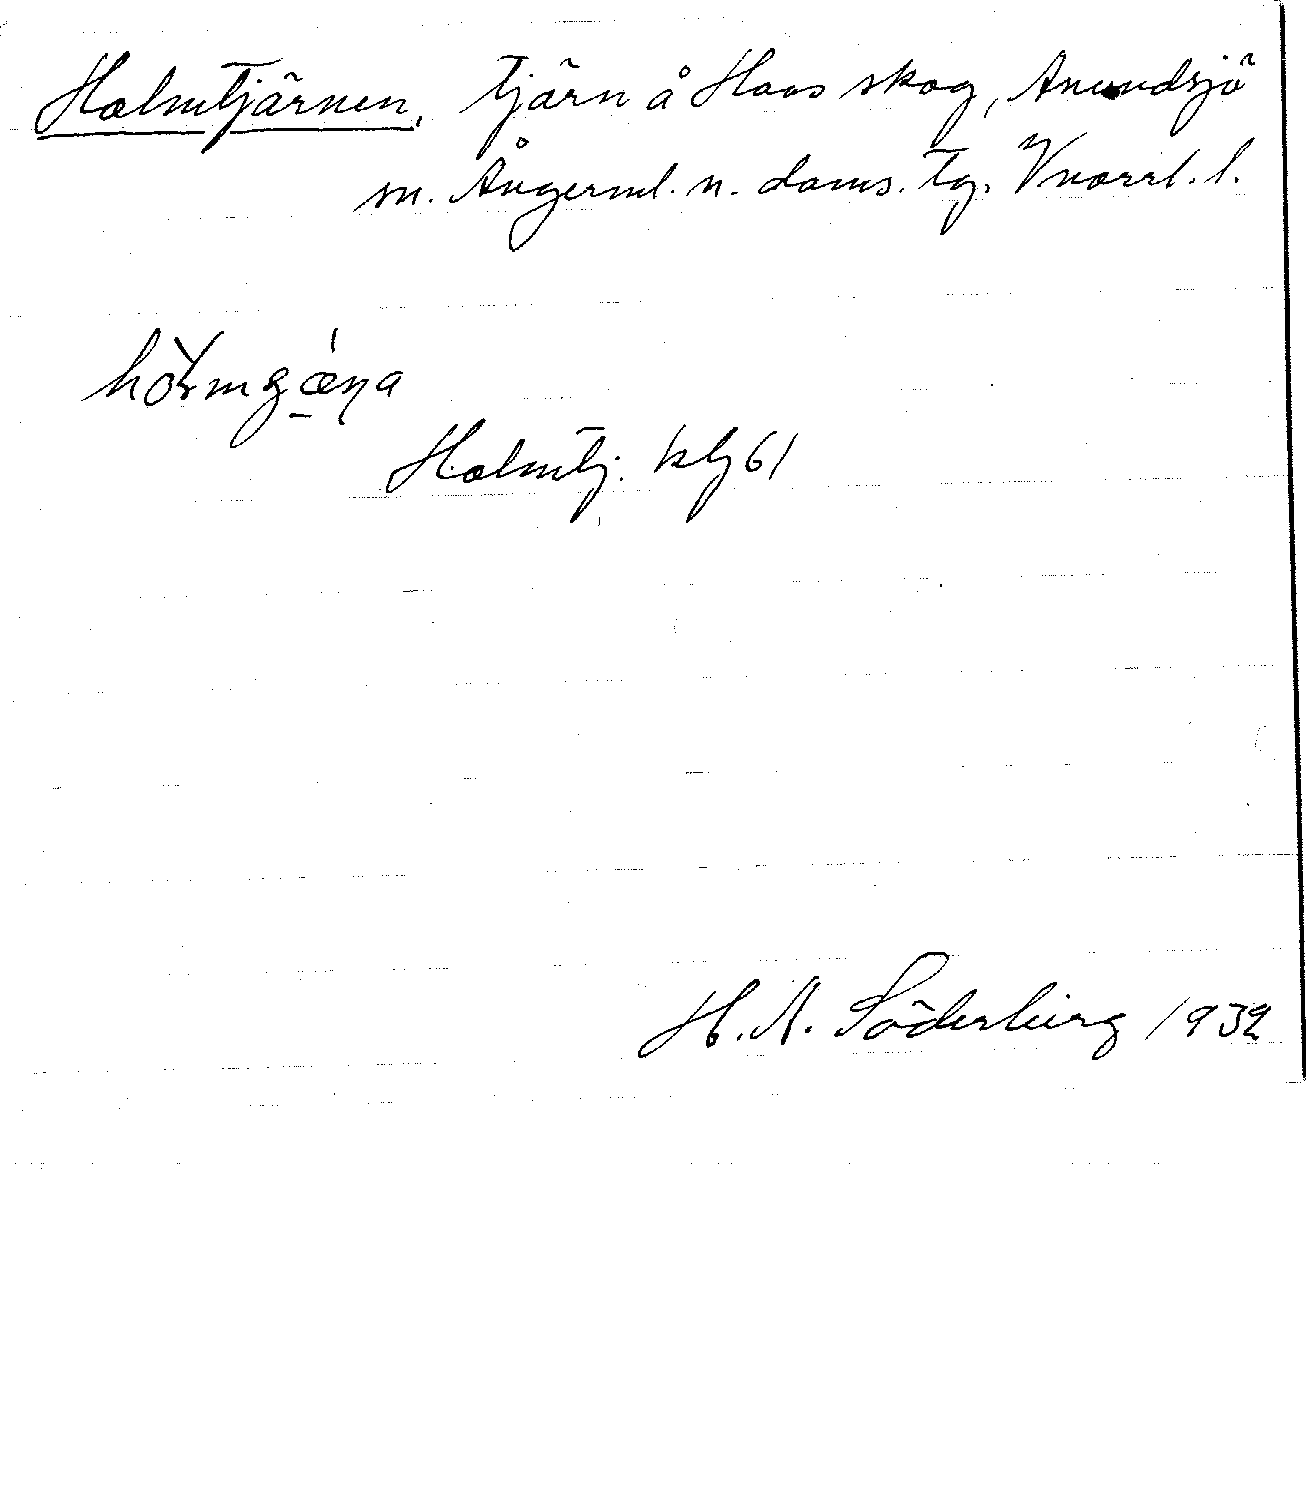 Holmtjärnen, tjärn å Hoos skog, Anundsjö
sn. Ångerml. n. doms. tg. Vnorrl. l.
Holmtj. kbl 61
H. A. Söderberg 1932